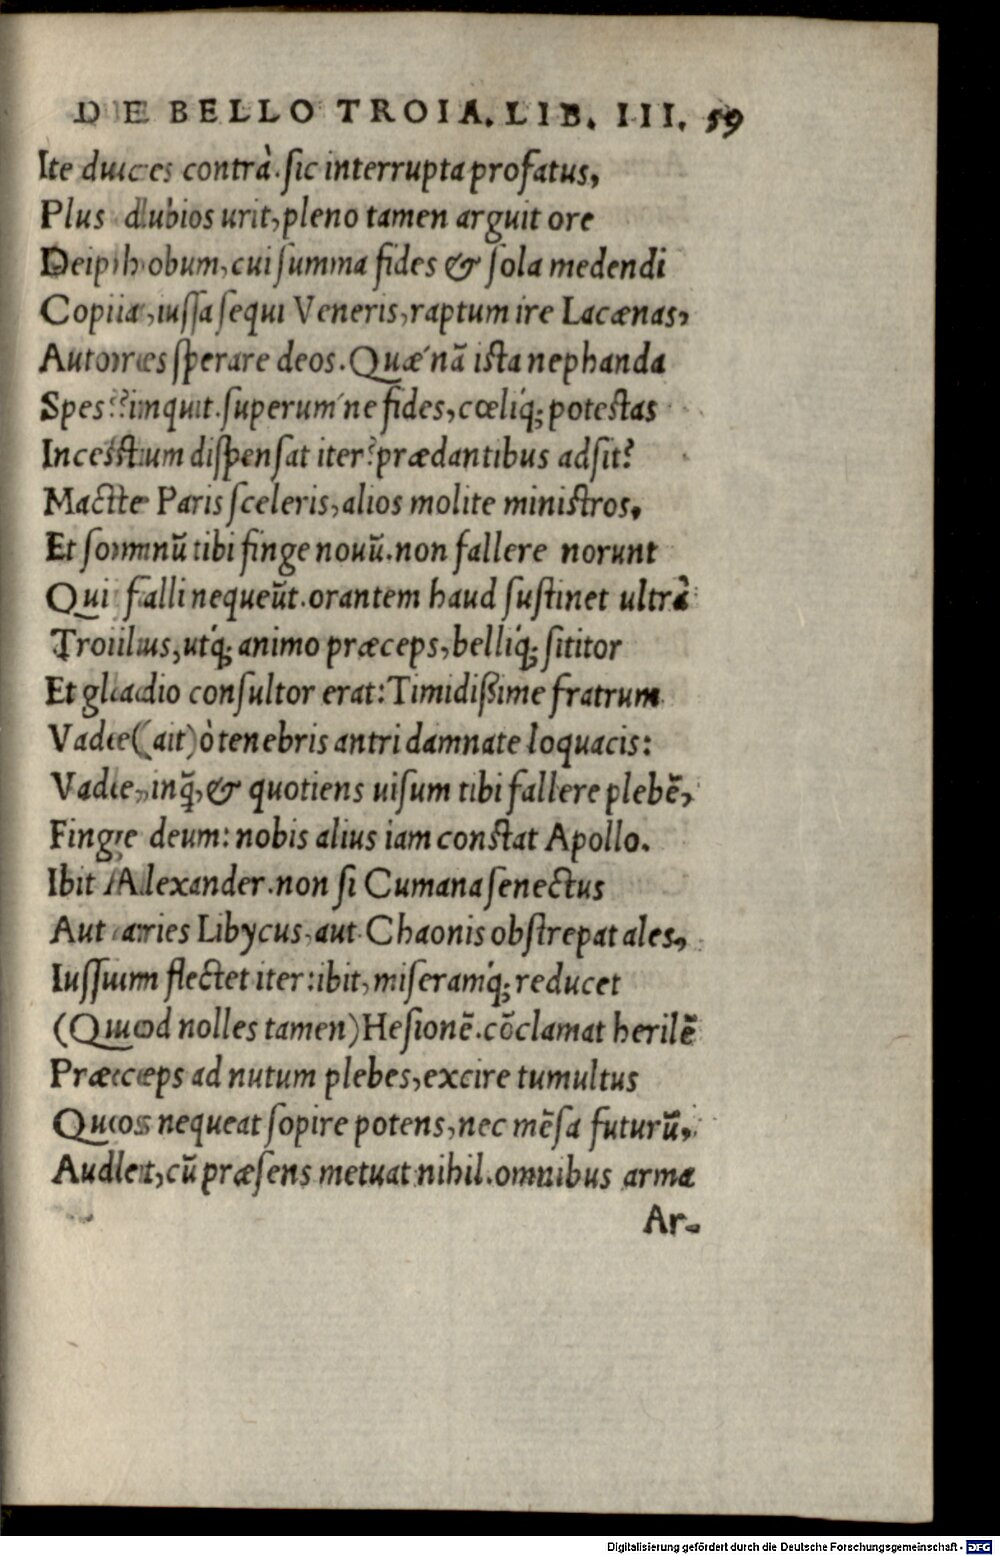 DE BELLO TROIA. LIB. III. 59
Ite duces contrà. sic interrupta profatus,
Plus dubios urit, pleno tamen arguit ore
Deiphobum, cui summa fides & sola medendi
Copia, iussa sequi Veneris, raptum ire Lacænas,
Autores sperare deos. Quæ´nã ista nephanda
Spes? inquit. superum´ne fides, cœliq́; potestas
Incestum dispensat iter? prædantibus adsit?
Macte Paris sceleris, alios molite ministros,
Et somnũ tibi finge nouũ. non fallere norunt
Qui falli nequeũt. orantem haud sustinet ultrà
Troilus, utq́; animo præceps, belliq́; sititor
Et gladio consultor erat: Timidißime fratrum
Vade (ait) ò tenebris antri damnate loquacis:
Vade, inq̃, & quotiens uisum tibi fallere plebẽ,
Finge deum: nobis alius iam constat Apollo.
Ibit Alexander. non si Cumana senectus
Aut aries Libycus, aut Chaonis obstrepat ales,
Iussum flectet iter: ibit, miseramq́; reducet
(Quod nolles tamen) Hesionẽ. cõclamat herilẽ
Præceps ad nutum plebes, excire tumultus
Quos nequeat sopire potens, nec mẽsa futurũ,
Audet, cũ præsens metuat nihil. omnibus arma
Ar-
Digitalisierung gefördert durch die Deutsche Forschungsgemeinschaft - DFG